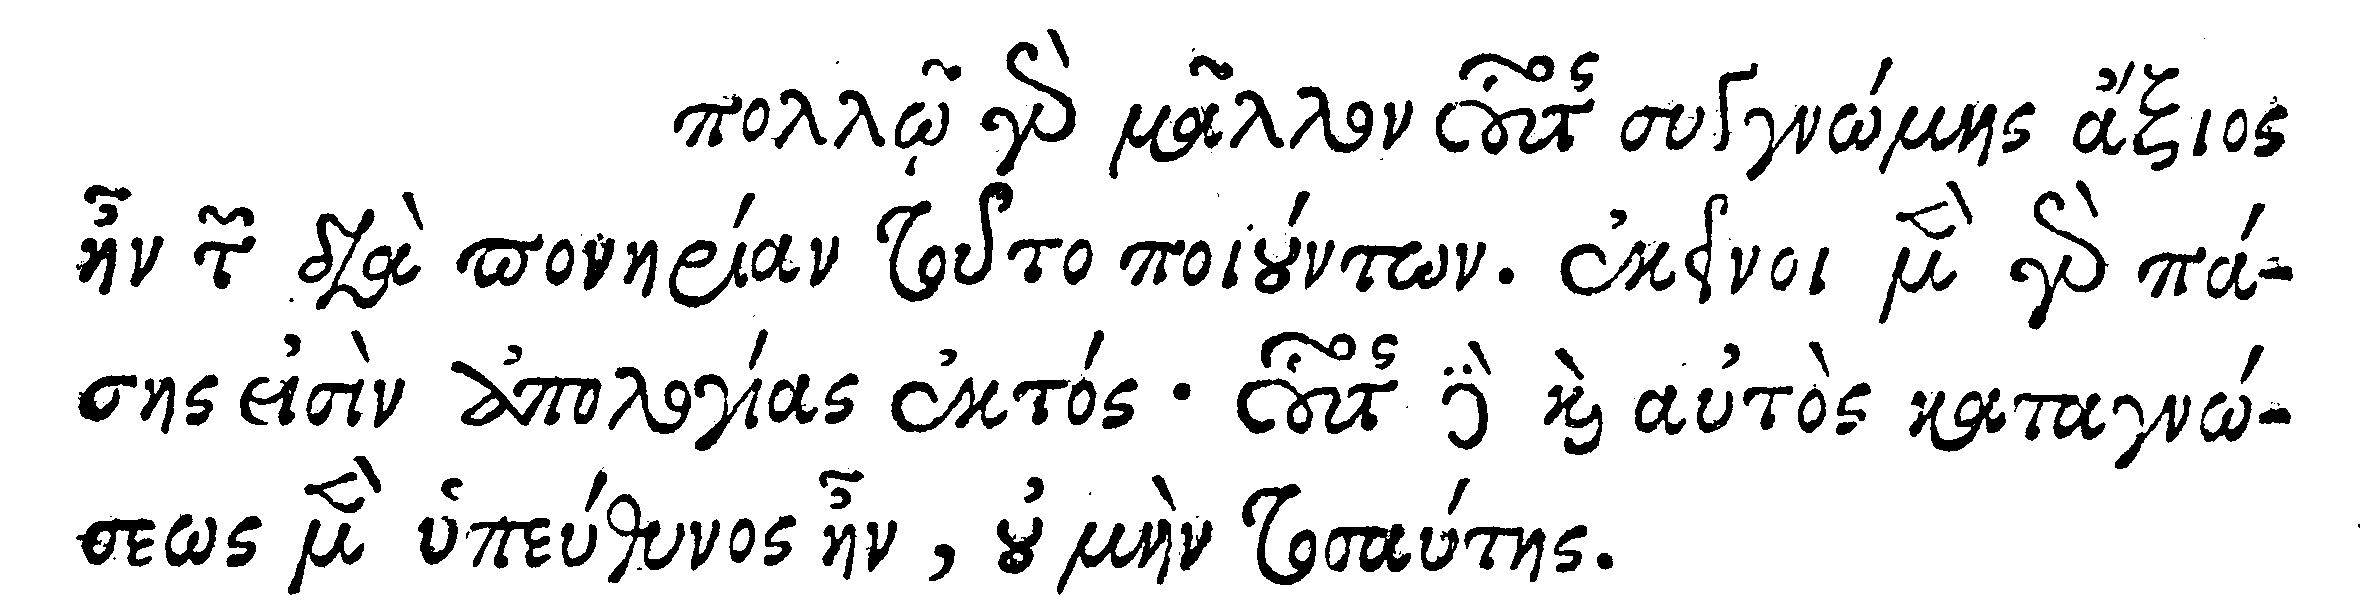 πολλῷ γὰρ μᾶλλον οὗτος συγγνώμης ἄξιος
ἦν τῶν διὰ πονηρίαν τοῦτο ποιούντων. ἐκεῖνοι μὲν γὰρ πά-
σης εἰσὶν ἀπολογίας ἐκτός· οὗτος δὲ καὶ αὐτὸς καταγνώ-
σεως μὲν ὑπεύθυνος ἦν, οὐ μὴν τοσαύτης.